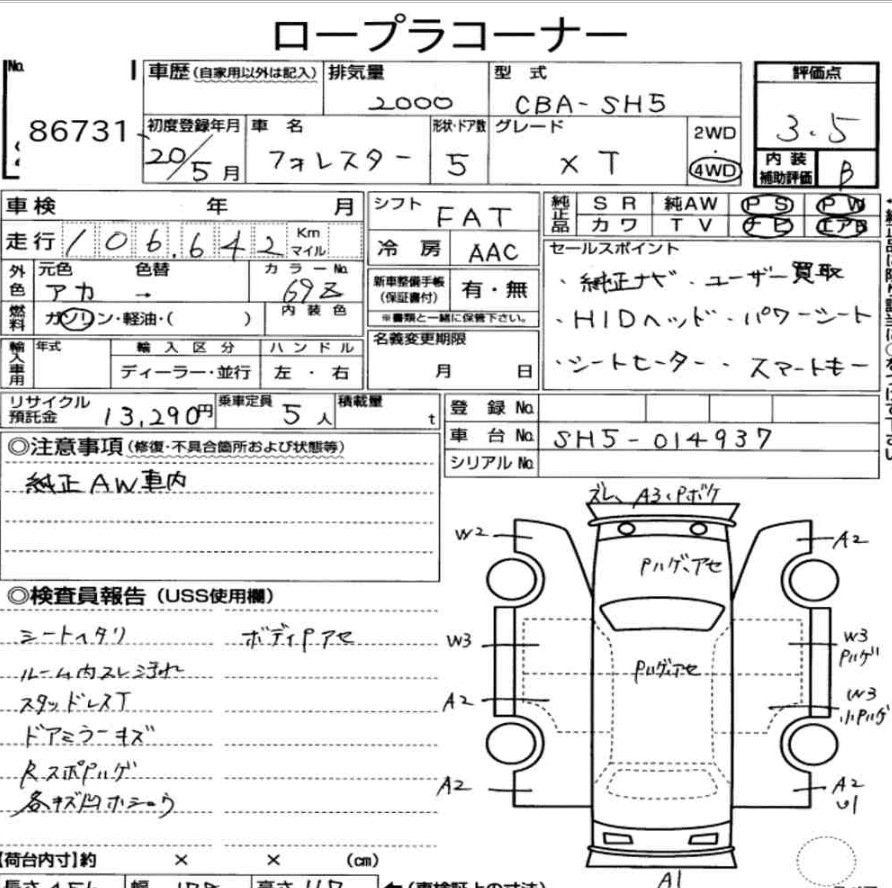 ロープラコーナー
No. 86731
車歴(自家用以外は記入) 排気量 2000
型式 CBA-SH5
評価点 3.5
初度登録年月 20/5月
車名 フォレスター
形状・ドア数 5
グレード XT
2WD・4WD
内装補助評価 B
車検 年 月
シフト FAT
純正品 SR 純AW PS PW
カワ TV ナビ エアB
走行 106,642 Km マイル
冷房 AAC
セールスポイント
・純正ナビ・ユーザー買取
・HIDヘッド・パワーシート
・シートヒーター・スマートキー
外色 元色 アカ 色替 → カラーNo. 69Z
新車整備手帳(保証書付) 有・無
※書類と一緒に保管下さい。
燃料 ガソリン・軽油・( ) 内装色
名義変更期限 月 日
輸入車用 年式 輸入区分 ディーラー・並行 ハンドル 左・右
リサイクル預託金 13,290円
乗車定員 5人
積載量 t
登録No.
車台No. SH5-014937
シリアルNo.
◎注意事項(修復・不具合箇所および状態等)
純正AW車内
◎検査員報告(USS使用欄)
シートヘタリ ボディPアセ
ルーム内スレ汚れ
スタッドレスT
ドアミラーキズ
RスポPハゲ
各キズ凹ホショウ
ズレ、A3、Pボケ
W2
A2
Pハゲ、アセ
W3
W3
Pハゲ
Pハゲ、アセ
A2
W3
小Pハゲ
A2
A2
U1
A1
【荷台内寸】約 × × (cm)
長さ 幅 高さ
(車検証上の寸法)